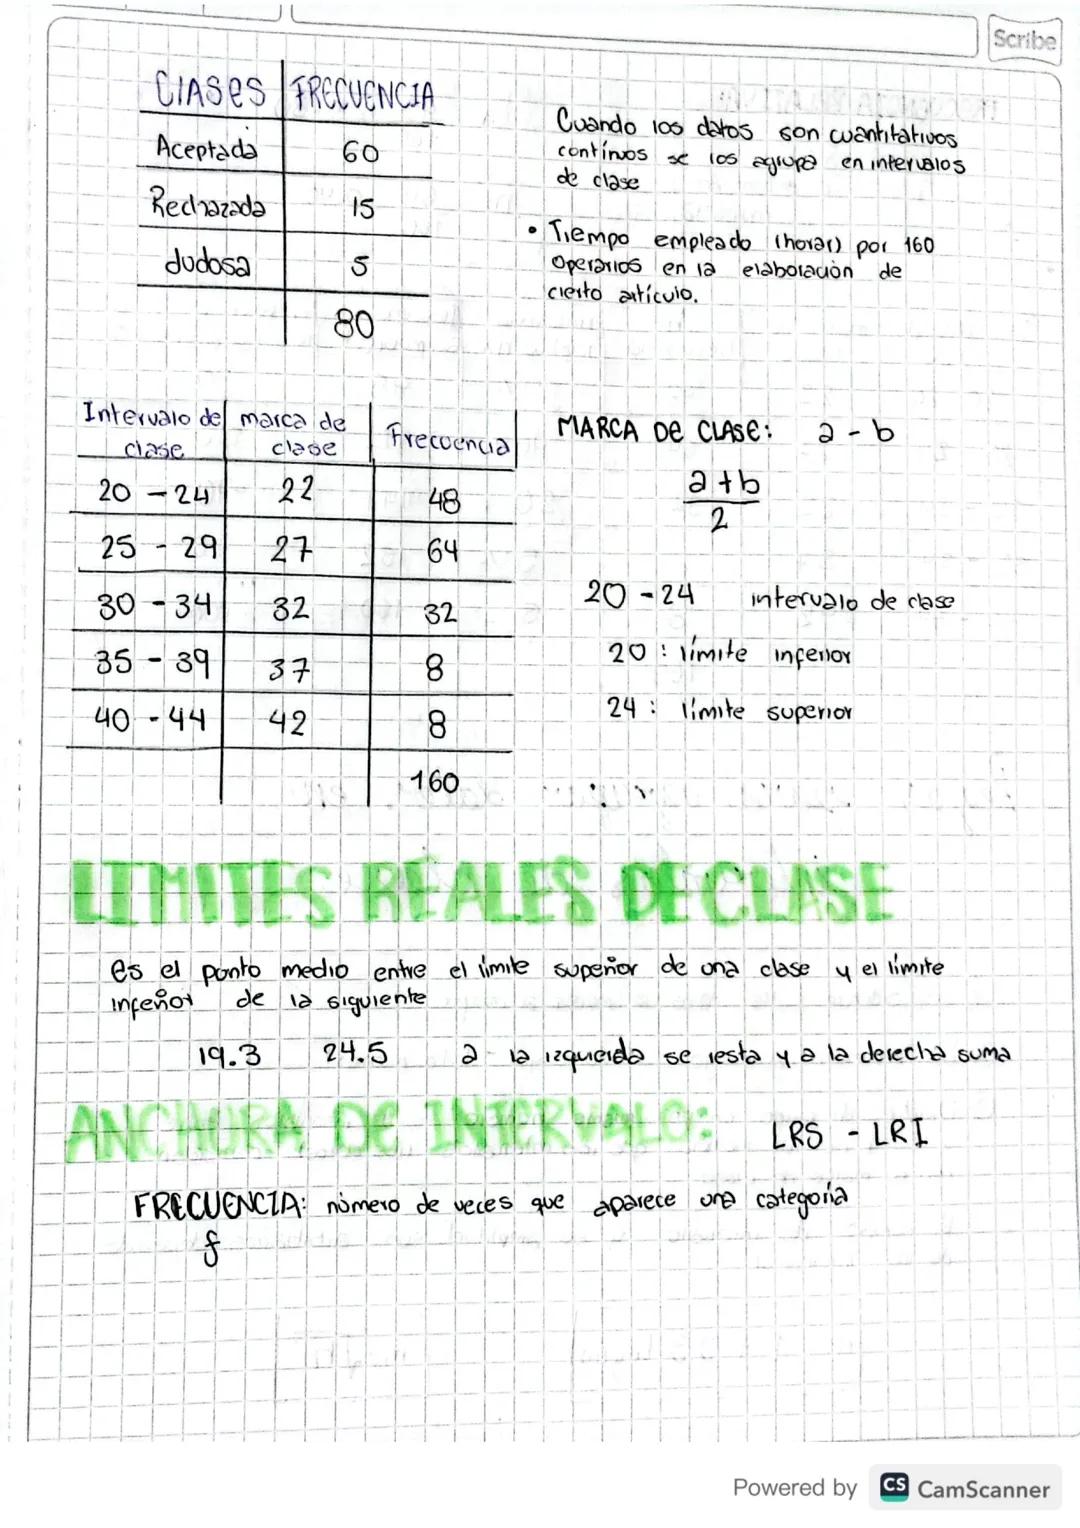 Scribe
Clases FRECUENCIA
Aceptada 60
Rechazada 15
dudosa 5
80
Cuando los datos son cuantitativos
contínuos se los agrupa en intervalos
de clase
• Tiempo empleado (horas) por 160
Operarios en la elaboración de
cierto artículo.
Intervalo de clase marca de clase Frecuencia
20 - 24 22 48
25 - 29 27 64
30 - 34 32 32
35 - 39 37 8
40 - 44 42 8
160
MARCA DE CLASE: a - b
a + b
2
20 - 24 intervalo de clase
20 : límite inferior
24 : límite superior
LIMITES REALES DE CLASE
es el punto medio entre el límite superior de una clase y el límite
inferior de la siguiente
19.3 24.5 a la izquierda se resta y a la derecha suma
ANCHURA DE INTERVALO: LRS - LRI
FRECUENCIA: número de veces que aparece una categoría
f
Powered by CS CamScanner